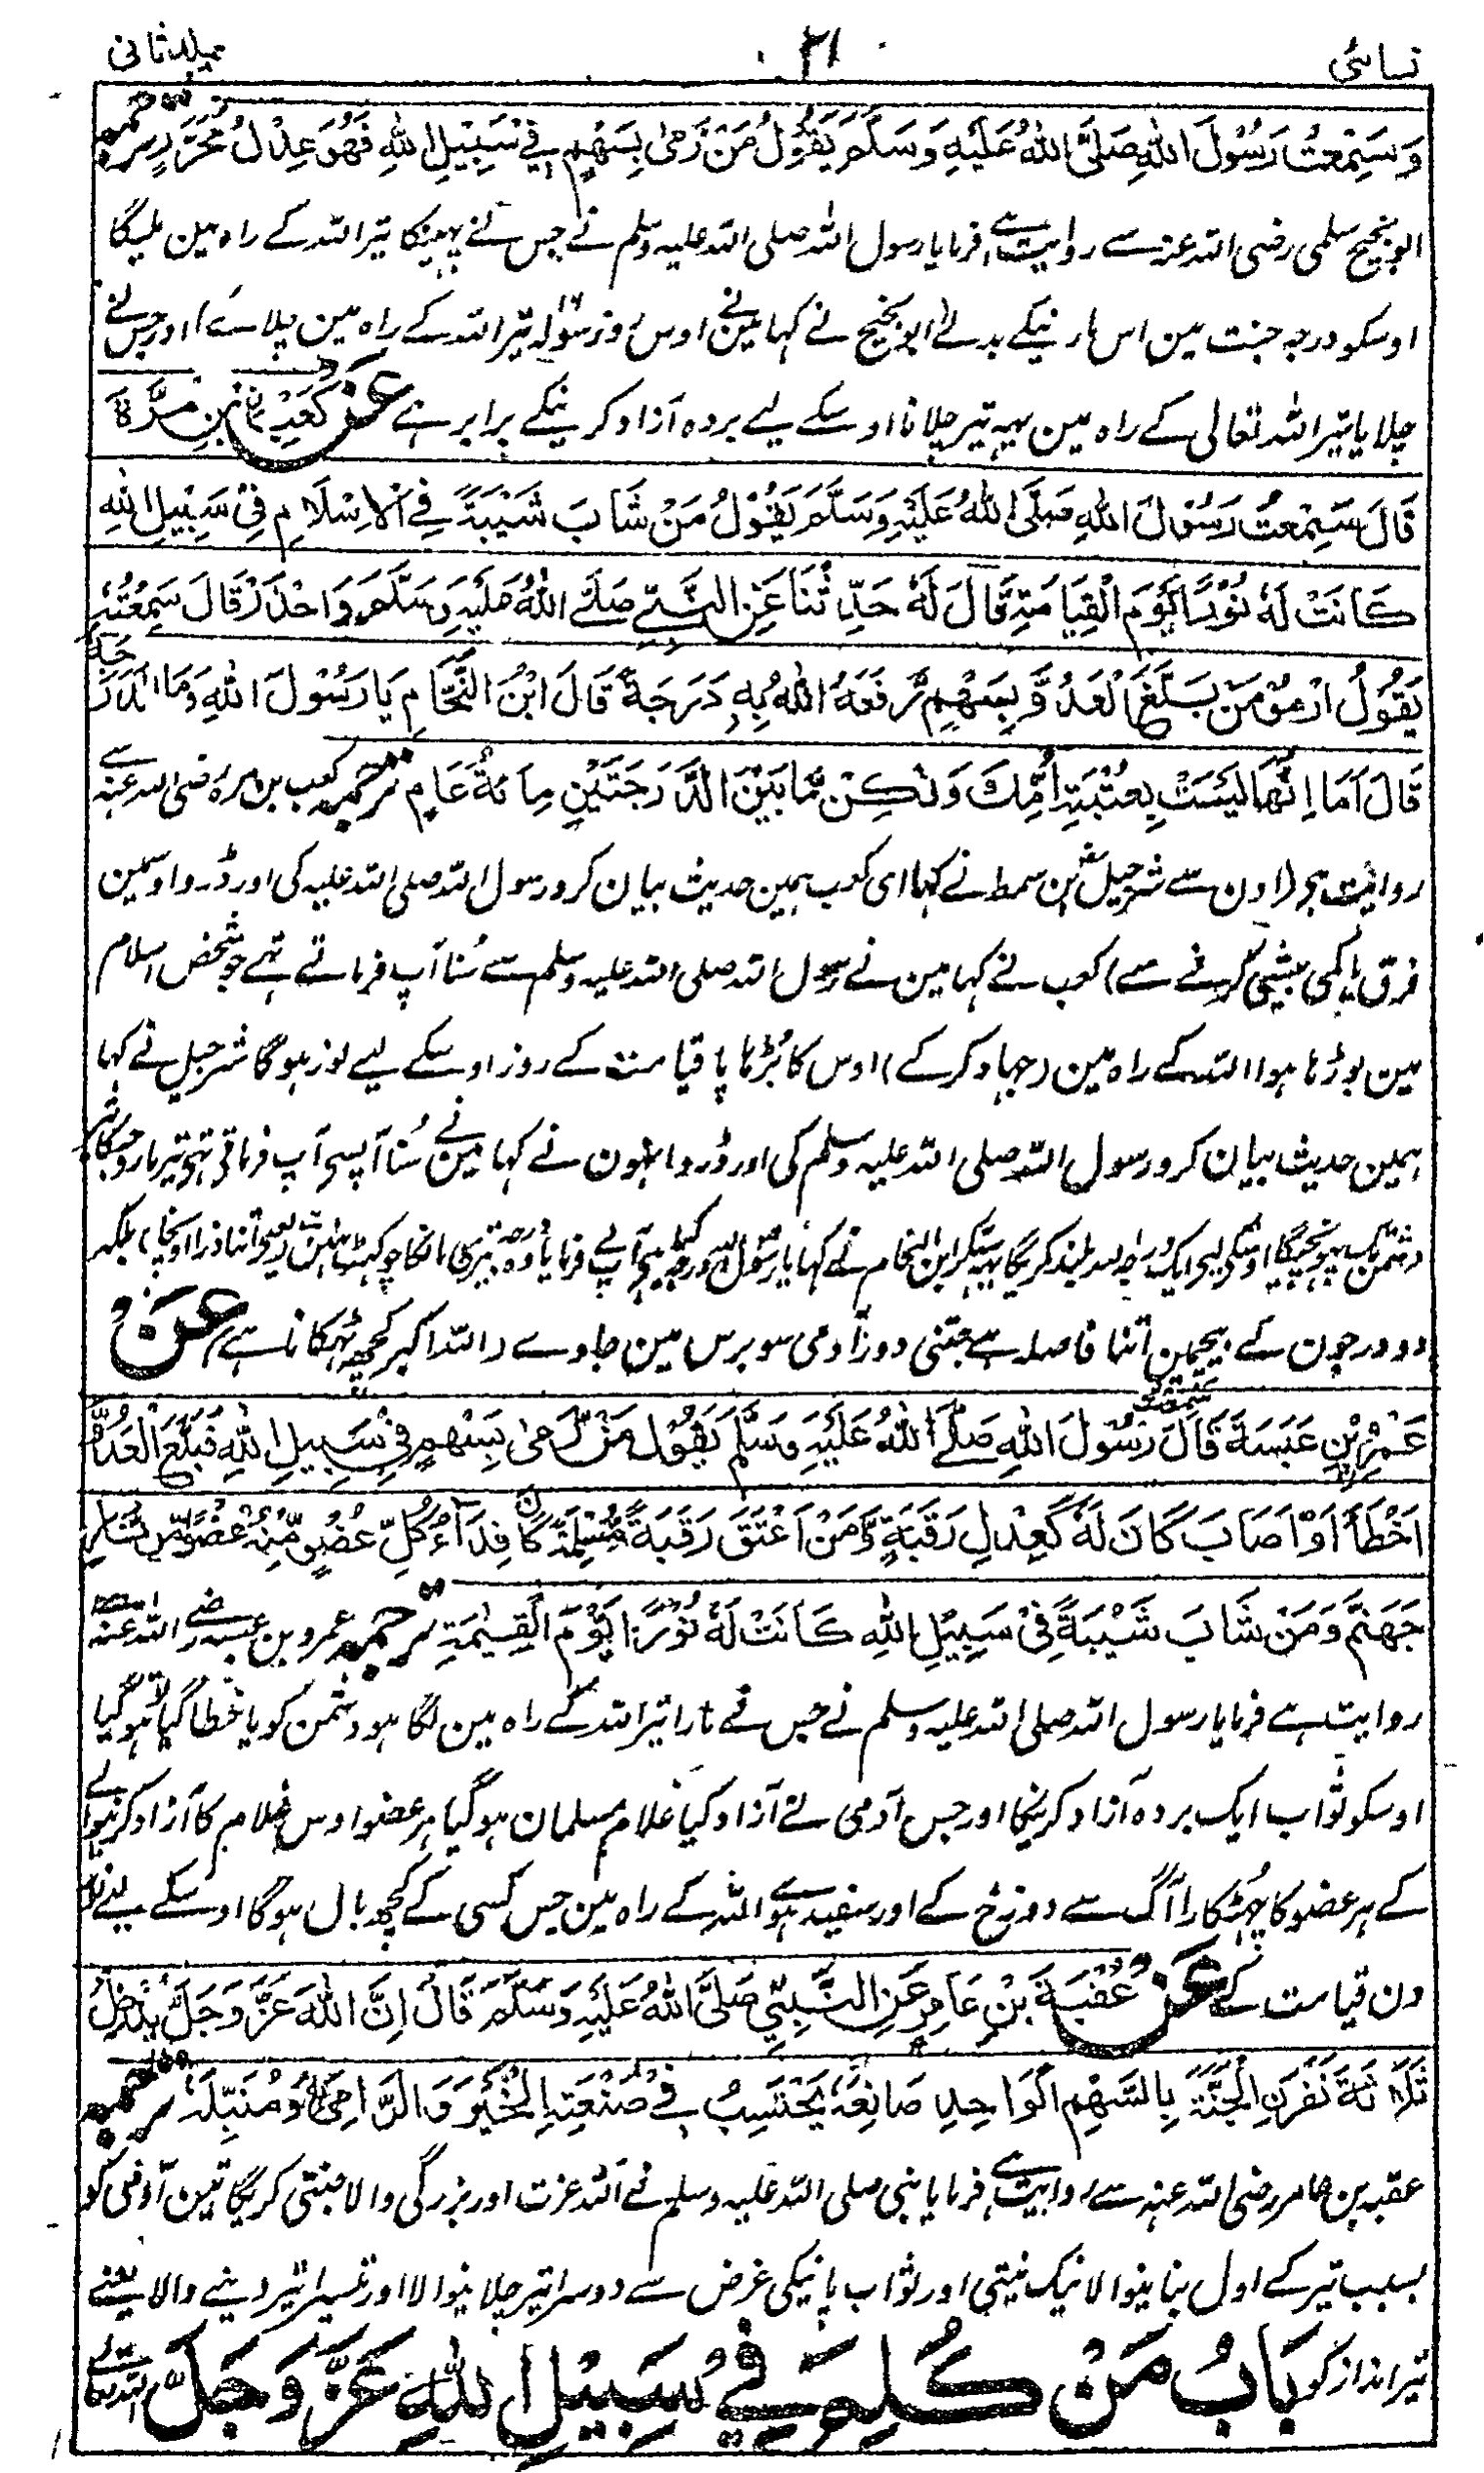 نسائی ٢١ جلد ثانی
وَسَمِعْتُ رَسُوْلَ اللهِ صَلَّى اللهُ عَلَيْهِ وَسَلَّمَ يَقُوْلُ مَنْ رَمٰى بِسَهْمٍ فِيْ سَبِيْلِ اللهِ فَهُوَ عِدْلُ مُحَرَّرٍ ترجمہ
ابو نجیح سلمی رضی اللہ عنہ سے روایت ہے فرمایا رسول اللہ صلی اللہ علیہ وسلم نے جس نے پہینکا تیر اللہ کے راہ مین ملیگا
اوسکو درجہ جنت مین اس مارنیکے بدلے ابو نجیح نے کہا مینے اوس روز سولہ تیر اللہ کے راہ مین چلائے) اور جس نے
چلایا تیر اللہ تعالی کے راہ مین یہہ تیر چلانا اوسکے لیے بردہ آزاد کرنیکے برابر ہے عَنْ كَعْبِ بْنِ مُرَّةَ
قَالَ سَمِعْتُ رَسُوْلَ اللهِ صَلَّى اللهُ عَلَيْهِ وَسَلَّمَ يَقُوْلُ مَنْ شَابَ شَيْبَةً فِي الْاِسْلَامِ فِيْ سَبِيْلِ اللهِ
كَانَتْ لَهٗ نُوْرًا يَّوْمَ الْقِيَامَةِ قَالَ لَهٗ حَدِّثْنَا عَنِ النَّبِيِّ صَلَّى اللهُ عَلَيْهِ وَسَلَّمَ وَاحْذَرْ قَالَ سَمِعْتُهٗ
يَقُوْلُ ارْمُوْا مَنْ بَلَغَ الْعَدُوَّ بِسَهْمٍ رَفَعَهُ اللهُ بِهٖ دَرَجَةً قَالَ ابْنُ النَّحَّامِ يَا رَسُوْلَ اللهِ وَمَا الدَّرَجَةُ
قَالَ اَمَا اِنَّهَا لَيْسَتْ بِعَتَبَةِ اُمِّكَ وَلٰكِنْ مَّا بَيْنَ الدَّرَجَتَيْنِ مِائَةُ عَامٍ ترجمہ کعب بن مرہ رضی اللہ عنہ سے
روایت ہے (اون سے شرحبیل بن سمط نے کہا ای کعب ہمین حدیث بیان کرو رسول اللہ صلی اللہ علیہ کی اور ڈرو اوسمین
فرق یا کمی بیشی کرنے سے) کعب نے کہا مین نے رسول اللہ صلی اللہ علیہ وسلم سے سُنا آپ فرماتے تہے جو شخص اسلام
مین بوڑہا ہوا اللہ کے راہ مین (جہاد کر کے) اوس کا بُڑہاپا قیامت کے روز اوسکے لیے نور ہوگا شرحبیل نے کہا
ہمین حدیث بیان کرو رسول اللہ صلی اللہ علیہ وسلم کی اور ڈرو انہون نے کہا مینے سُنا آپسے آپ فرماتی تہی تیر مارو جسکا تیر
دشمن تک پہونچیگا اوسکے لیے ایک درجہ اللہ بلند کریگا یہہ سنکر ابن النحام نے کہا یا رسول اللہ درجہ کیا ہی آپنے فرمایا وہ درجہ تیری مانکا چوکہٹ نہین (یعنی اتنا ذرا اونچا) بلکہ
دو درجون کے بیچمین اتنا فاصلہ ہے جتنی دور آدمی سو برس مین جاوے (اللہ اکبر کچھہ ٹہکانا ہے) عَنْ
عَمْرِو بْنِ عَبَسَةَ قَالَ سَمِعْتُ رَسُوْلَ اللهِ صَلَّى اللهُ عَلَيْهِ وَسَلَّمَ يَقُوْلُ مَنْ رَّمٰى بِسَهْمٍ فِيْ سَبِيْلِ اللهِ فَبَلَغَ الْعَدُوَّ
اَخْطَأَ اَوْ اَصَابَ كَانَ لَهٗ كَعِدْلِ رَقَبَةٍ وَّمَنْ اَعْتَقَ رَقَبَةً مُّسْلِمَةً كَانَ فِدَاءُ كُلِّ عُضْوٍ مِّنْهُ عُضْوًا مِّنْ نَّارِ
جَهَنَّمَ وَمَنْ شَابَ شَيْبَةً فِيْ سَبِيْلِ اللهِ كَانَتْ لَهٗ نُوْرًا يَّوْمَ الْقِيٰمَةِ ترجمہ عمرو بن عبسہ رضی اللہ عنہ
روایت ہے فرمایا رسول اللہ صلی اللہ علیہ وسلم نے جس نے مارا تیر اللہ کے راہ مین لگا ہو دشمن کو یا خطا گیا ہو گیا
اوسکو ثواب ایک بردہ آزاد کرنیکا اور جس آدمی نے آزاد کیا غلام مسلمان ہوگیا ہر عضو اوس غلام کا آزاد کرنیوالے
کے ہر عضو کا چہٹکارا آگ سے دوزخ کے اور سفید ہوئے اللہ کے راہ مین جس کسی کے کچھہ بال ہوگا اوسکے لیے نور
دن قیامت کے عَنْ عُقْبَةَ بْنِ عَامِرٍ عَنِ النَّبِيِّ صَلَّى اللهُ عَلَيْهِ وَسَلَّمَ قَالَ اِنَّ اللهَ عَزَّ وَجَلَّ يُدْخِلُ
ثَلَاثَةَ نَفَرٍ الْجَنَّةَ بِالسَّهْمِ الْوَاحِدِ صَانِعَهٗ يَحْتَسِبُ فِيْ صُنْعَتِهِ الْخَيْرَ وَالرَّامِيَ وَمُنَبِّلَهٗ ترجمہ
عقبہ بن عامر رضی اللہ عنہ سے روایت ہے فرمایا نبی صلی اللہ علیہ وسلم نے اللہ عزت اور بزرگی والا جنتی کریگا تین آدمی کو
بسبب تیر کے اول بنانیوالا نیک نیتی اور ثواب پانیکی غرض سے دوسرا تیر چلانیوالا اور تیسرا تیر دینے والا یعنے
تیر انداز کو بَابُ مَنْ كُلِمَ فِيْ سَبِيْلِ اللهِ عَزَّ وَجَلَّ